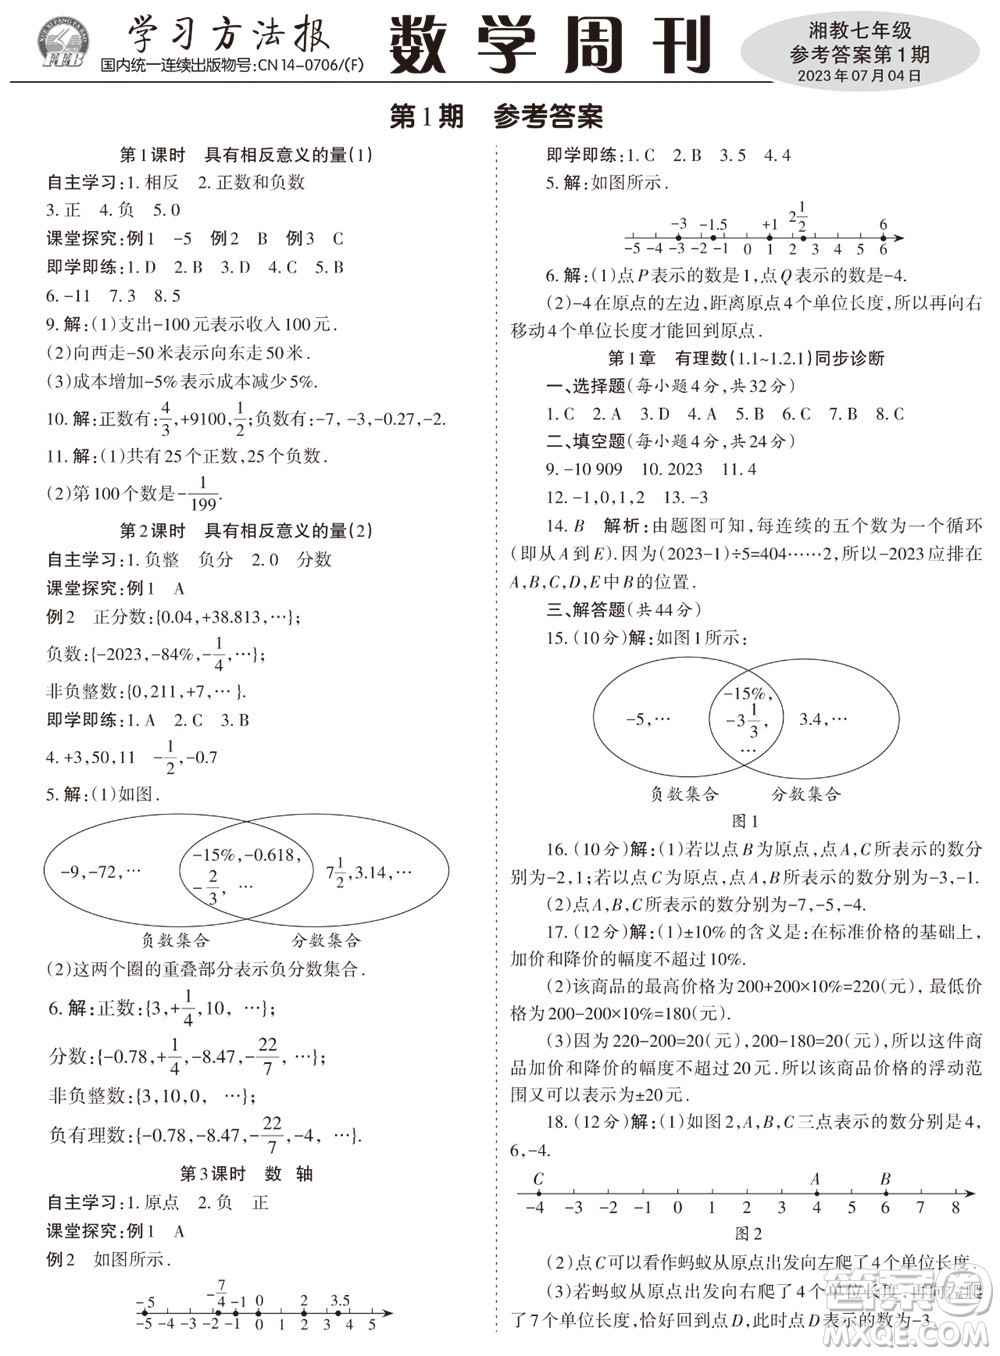 学习方法报
国内统一连续出版物号:CN 14-0706/(F)
数学周刊
湘教七年级
参考答案第1期
2023年07月04日
第1期 参考答案
第1课时 具有相反意义的量(1)
自主学习:1.相反 2.正数和负数
3.正 4.负 5.0
课堂探究:例1 -5 例2 B 例3 C
即学即练:1.D 2.B 3.D 4.C 5.B
6.-11 7.3 8.5
9.解:(1)支出-100元表示收入100元.
(2)向西走-50米表示向东走50米.
(3)成本增加-5%表示成本减少5%.
10.解:正数有:4/3,+9100,1/2;负数有:-7,-3,-0.27,-2.
11.解:(1)共有25个正数,25个负数.
(2)第100个数是-1/199.
第2课时 具有相反意义的量(2)
自主学习:1.负整 负分 2.0 分数
课堂探究:例1 A
例2 正分数:{0.04,+38.813,…};
负数:{-2023,-84%,-1/4,…};
非负整数:{0,211,+7,… }.
即学即练:1.A 2.C 3.B
4.+3,50,11 -1/2,-0.7
5.解:(1)如图.
-9,-72,… -15%,-0.618,-2/3,… 7 1/2,3.14,…
负数集合 分数集合
(2)这两个圈的重叠部分表示负分数集合.
6.解:正数:{3,+1/4,10, …};
分数:{-0.78,+1/4,-8.47,-22/7, …};
非负整数:{3,10,0, …};
负有理数:{-0.78,-8.47,-22/7,-4, …}.
第3课时 数 轴
自主学习:1.原点 2.负 正
课堂探究:例1 A
例2 如图所示.
-5 -7/4 -1 0 2 3.5
-5 -4 -3 -2 -1 0 1 2 3 4 5
即学即练:1.C 2.B 3.5 4.4
5.解:如图所示.
-3 -1.5 +1 2 1/2 6
-5 -4 -3 -2 -1 0 1 2 3 4 5 6
6.解:(1)点P表示的数是1,点Q表示的数是-4.
(2)-4在原点的左边,距离原点4个单位长度,所以再向右
移动4个单位长度才能回到原点.
第1章 有理数(1.1~1.2.1)同步诊断
一、选择题(每小题4分,共32分)
1.C 2.A 3.D 4.A 5.D 6.B 7.B 8.C
二、填空题(每小题4分,共24分)
9.-10 909 10.2023 11.4
12.-1,0,1,2 13.-3
14.B 解析:由题图可知,每连续的五个数为一个循环
(即从A到E).因为(2023-1)÷5=404……2,所以-2023应排在
A,B,C,D,E中B的位置.
三、解答题(共44分)
15.(10分)解:如图1所示:
-5,… -15%,-3 1/3,… 3.4,…
负数集合 分数集合
图1
16.(10分)解:(1)若以点B为原点,点A,C所表示的数分
别为-2,1;若以点C为原点,点A,B所表示的数分别为-3,-1.
(2)点A,B,C所表示的数分别为-7,-5,-4.
17.(12分)解:(1)±10%的含义是:在标准价格的基础上,
加价和降价的幅度不超过10%.
(2)该商品的最高价格为200+200×10%=220(元),最低价
格为200-200×10%=180(元).
(3)因为220-200=20(元),200-180=20(元),所以这件商
品加价和降价的幅度不超过20元.所以该商品价格的浮动范
围又可以表示为±20元.
18.(12分)解:(1)如图2,A,B,C三点表示的数分别是4,
6,-4.
C A B
-4 -3 -2 -1 0 1 2 3 4 5 6 7 8
图2
(2)点C可以看作蚂蚁从原点出发向左爬了4个单位长度.
(3)若蚂蚁从原点出发向右爬了4个单位长度,再向左爬
了7个单位长度,恰好回到点D,此时点D表示的数为-3.
答案圈
MXQE.COM